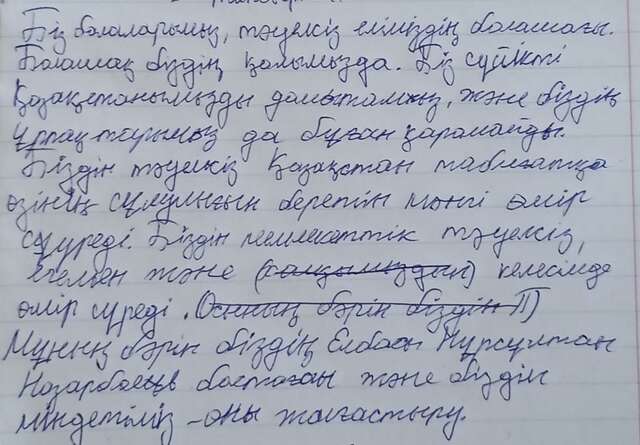 Біз балаларымыз, тәуелсіз еліміздің болашағы.
Болашақ біздің қолымызда. Біз сүйікті
Қазақстанымызды дамытамыз, және біздің
ұрпақтарымыз да бұған қарамайды.
Біздің тәуелсіз Қазақстан табиғатқа
өзінің сұлулығын беретін мәңгі өмір
сүреді. Біздің мемлекеттік тәуелсіз,
және келесімде
өмір сүреді. Осының бәрін біздің П)
Мұның бәрін біздің Елбасы Нұрсұлтан
Назарбаев бастаған және біздің
міндетіміз - оны жалғастыру.